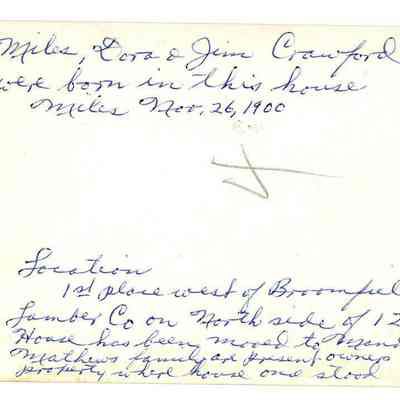 Miles, Dora & Jim Crawford
were born in this house
Miles Nov. 26, 1900
Location
1st place west of Broomfiel
Lumber Co on North side of 12
House has been moved to
Mathews family are present owners
property where house one stood